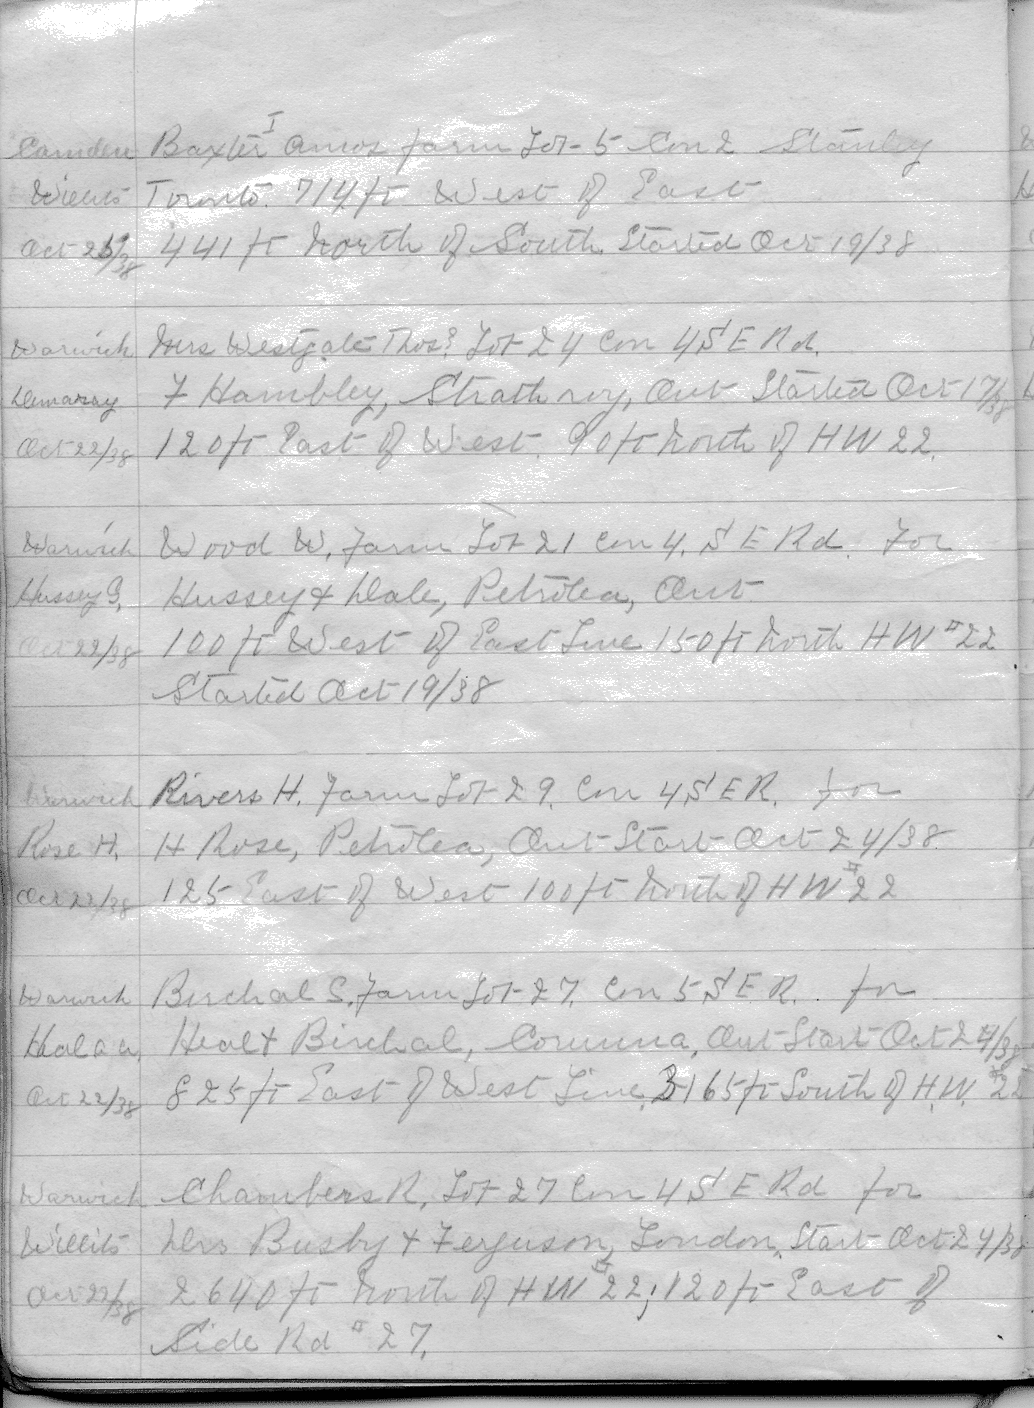 Camden Baxter I Amos farm Lot 5 Con 2 Stanley
Willits Toronto. 714 ft West of East
Oct 21/38 441 ft North of South. Started Oct 19/38
Warwick Mrs Westgate Thos? Lot 24 Con 4 S E Rd.
Demaray F Hambley, Strathroy, Ont Started Oct 17/38
Oct 22/38 120 ft East of West. 90 ft North of HW 22.
Warwick Wood W. Farm Lot 21 Con 4. S E Rd. For
Hussey G. Hussey & Dale, Petrolea, Ont.
Oct 22/38 100 ft West of East Line 150 ft North HW #22
Started Oct 19/38
Warwick Rivers H. Farm Lot 29. Con 4 S E R. for
Rose H. H Rose, Petrolea, Ont Start Oct 24/38.
Oct 22/38 125 East of West 100 ft North of HW #22
Warwick Birchal S. Farm Lot 27. Con 5 S E R. for
Heal & Birchal, Corunna, Ont Start Oct 24/38
Oct 22/38 825 ft East of West Line, 165 ft South of H.W. #22
Warwick Chambers R. Lot 27 Con 4 S E Rd for
Willits Drs Busby & Ferguson, London, Start Oct 24/38
Oct 22/38 2640 ft North of HW #22; 120 ft East of
Side Rd #27.